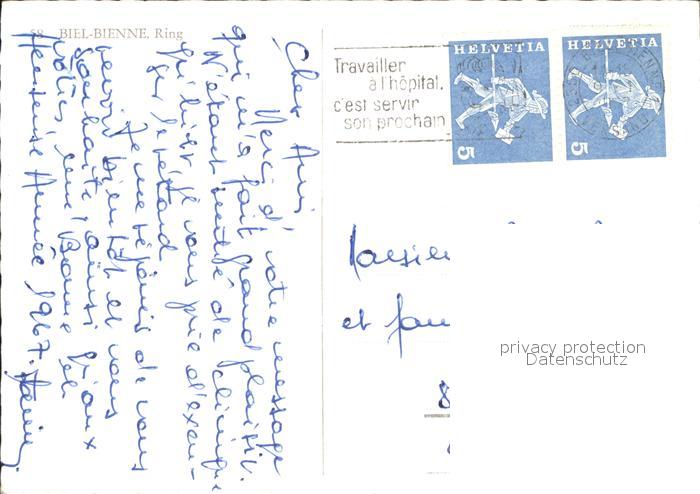 58 BIEL-BIENNE, Ring
Chers Amis
Merci d' votre message
qui m'a fait grand plaisir.
N'étant rentré de clinique
qu'hier je vous prie d'excu-
ser le retard
Je me réjouis de vous
revoir bientôt et vous
souhaite, ainsi qu'aux
vôtres, une Bonne et
Heureuse Année 1967.
Travailler
à l'hôpital,
c'est servir
son prochain
HELVETIA
5
HELVETIA
5
Monsieu
et fam
8
privacy protection
Datenschutz